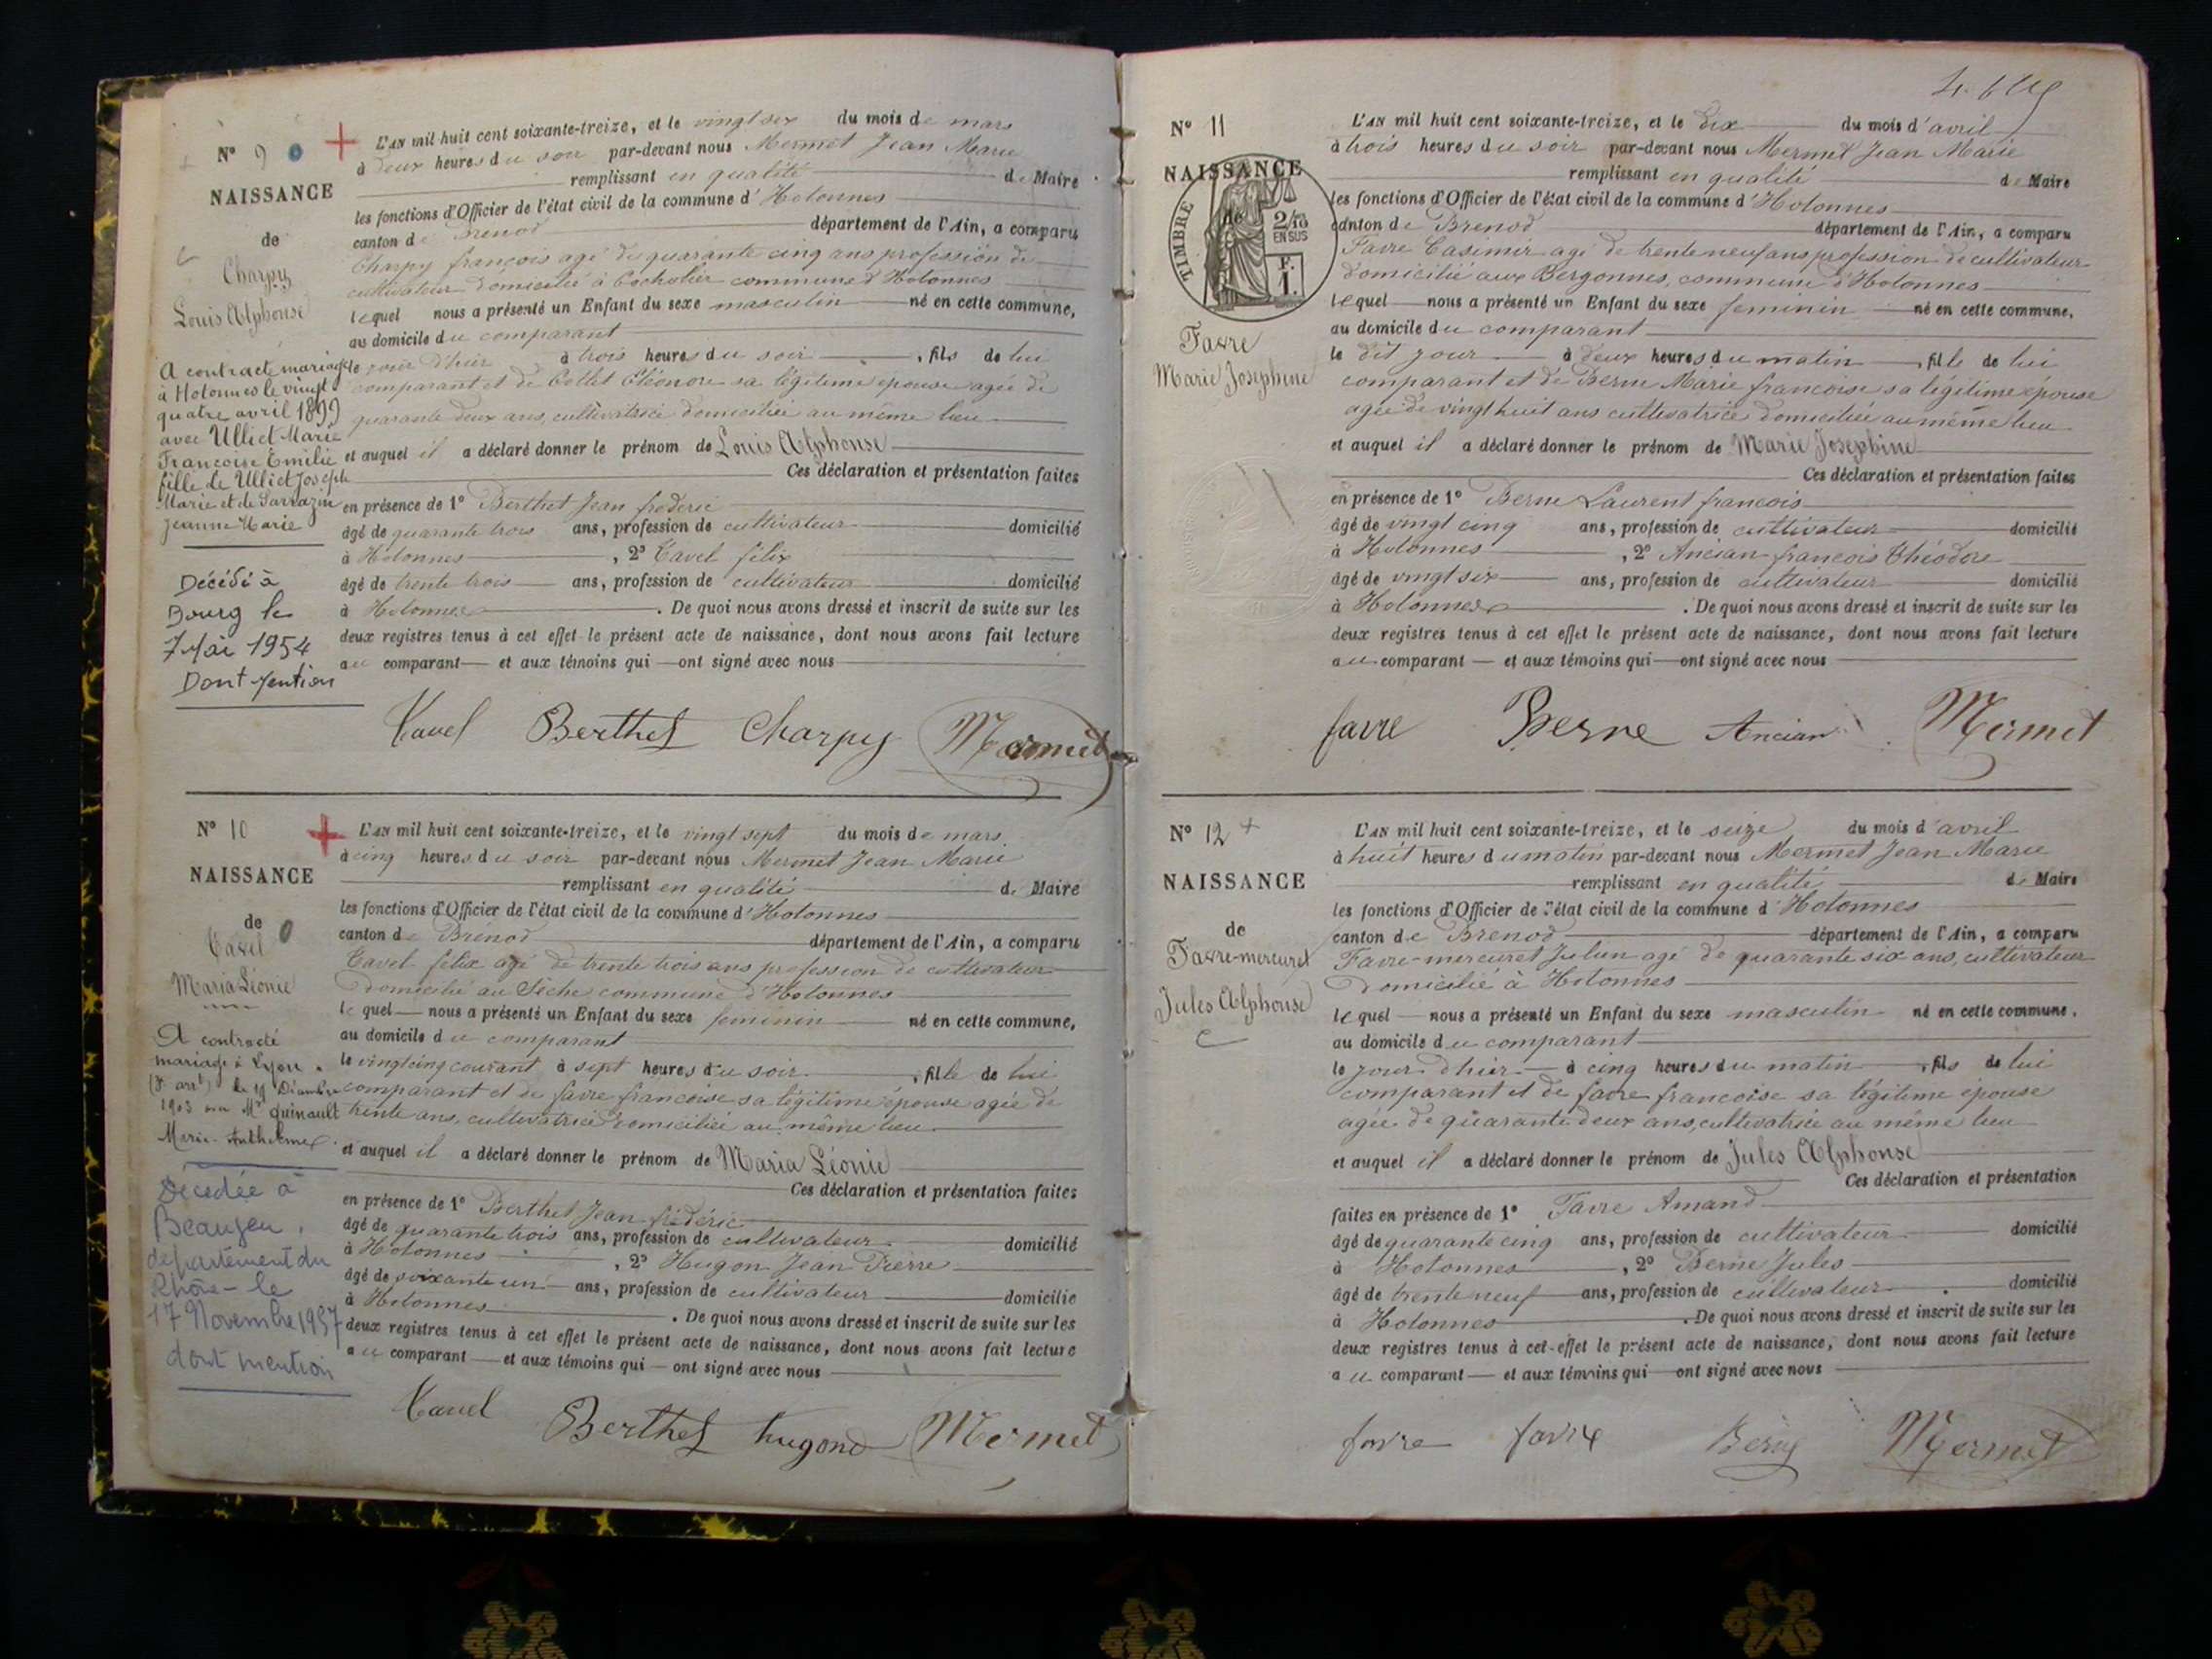 N° 9
NAISSANCE
de
Charpy
Louis Alphonse
A contracté mariage
à Hotonnes le vingt
quatre avril 1899
avec Ulliet Marie
Françoise Emilie
fille de Ulliet Joseph
Marie et de Sarrazin
Jeanne Marie
Décédé à
Bourg le
7 Mai 1954
Dont mention
L'AN mil huit cent soixante-treize, et le vingt six du mois de mars
à deux heures du soir par-devant nous Mermet Jean Marie
remplissant en qualité de Maire
les fonctions d'Officier de l'état civil de la commune d'Hotonnes
canton de Brenod département de l'Ain, a comparu
Charpy françois agé de quarante cinq ans profession de
cultivateur domicilié à commune d'Hotonnes
lequel nous a présenté un Enfant du sexe masculin né en cette commune,
au domicile du comparant
le jour d'hier à trois heures du soir, fils de lui
comparant et de Collet Eléonore sa légitime épouse agée de
quarante deux ans, cultivatrice domiciliée au même lieu
et auquel il a déclaré donner le prénom de Louis Alphonse
Ces déclaration et présentation faites
en présence de 1° Berthet Jean frederic
âgé de quarante trois ans, profession de cultivateur domicilié
à Hotonnes, 2° Cavel félix
âgé de trente trois ans, profession de cultivateur domicilié
à Hotonnes. De quoi nous avons dressé et inscrit de suite sur les
deux registres tenus à cet effet le présent acte de naissance, dont nous avons fait lecture
au comparant et aux témoins qui ont signé avec nous
Cavel Berthet Charpy Mermet
N° 10
NAISSANCE
de
Cavel
Maria Léonie
A contracté
mariage à Lyon
(3e arrt) le Décembre
1903 avec Mr Guinault
Marie Anthelme
Décédée à
Beaujeu,
département du
Rhône - le
17 Novembre 1957
dont mention
L'AN mil huit cent soixante-treize, et le vingt sept du mois de mars
à cinq heures du soir par-devant nous Mermet Jean Marie
remplissant en qualité de Maire
les fonctions d'Officier de l'état civil de la commune d'Hotonnes
canton de Brenod département de l'Ain, a comparu
Cavel félix agé de trente trois ans profession de cultivateur
domicilié au Séche commune d'Hotonnes
lequel nous a présenté un Enfant du sexe feminin né en cette commune,
au domicile du comparant
le vingt cinq courant à sept heures du soir, fille de lui
comparant et de favre francoise sa légitime épouse agée de
trente ans, cultivatrice domiciliée au même lieu
et auquel il a déclaré donner le prénom de Maria Léonie
Ces déclaration et présentation faites
en présence de 1° Berthet Jean frédéric
âgé de quarante trois ans, profession de cultivateur domicilié
à Hotonnes, 2° Hugon Jean Pierre
âgé de soixante un ans, profession de cultivateur domicilié
à Hotonnes. De quoi nous avons dressé et inscrit de suite sur les
deux registres tenus à cet effet le présent acte de naissance, dont nous avons fait lecture
au comparant et aux témoins qui ont signé avec nous
Cavel Berthet hugond Mermet
N° 11
NAISSANCE
de
TIMBRE
2/10
EN SUS
F.
1.
Favre
Marie Josephine
L'AN mil huit cent soixante-treize, et le dix du mois d'avril
à trois heures du soir par-devant nous Mermet Jean Marie
remplissant en qualité de Maire
les fonctions d'Officier de l'état civil de la commune d'Hotonnes
canton de Brenod département de l'Ain, a comparu
Favre Casimir agé de trente neuf ans profession de cultivateur
domicilié aux Bergonnes, commune d'Hotonnes
lequel nous a présenté un Enfant du sexe feminin né en cette commune,
au domicile du comparant
le dit jour à deux heures du matin, fille de lui
comparant et de Berne Marie francoise sa légitime épouse
agée de vingt huit ans cultivatrice domiciliée au même lieu
et auquel il a déclaré donner le prénom de Marie Josephine
Ces déclaration et présentation faites
en présence de 1° Berne Laurent francois
âgé de vingt cinq ans, profession de cultivateur domicilié
à Hotonnes, 2° Ancian francois Théodore
âgé de vingt six ans, profession de cultivateur domicilié
à Hotonnes. De quoi nous avons dressé et inscrit de suite sur les
deux registres tenus à cet effet le présent acte de naissance, dont nous avons fait lecture
au comparant et aux témoins qui ont signé avec nous
favre Berne Ancian Mermet
N° 12
NAISSANCE
de
Favre-mercuret
Jules Alphonse
L'AN mil huit cent soixante-treize, et le seize du mois d'avril
à huit heures du matin par-devant nous Mermet Jean Marie
remplissant en qualité de Maire
les fonctions d'Officier de l'état civil de la commune d'Hotonnes
canton de Brenod département de l'Ain, a comparu
Favre-mercuret Julien agé de quarante six ans, cultivateur
domicilié à Hotonnes
lequel nous a présenté un Enfant du sexe masculin né en cette commune,
au domicile du comparant
le jour d'hier à cinq heures du matin, fils de lui
comparant et de favre francoise sa légitime épouse
agée de quarante deux ans, cultivatrice au même lieu
et auquel il a déclaré donner le prénom de Jules Alphonse
Ces déclaration et présentation
faites en présence de 1° Favre Amand
âgé de quarante cinq ans, profession de cultivateur domicilié
à Hotonnes, 2° Berne Jules
âgé de trente neuf ans, profession de cultivateur domicilié
à Hotonnes. De quoi nous avons dressé et inscrit de suite sur les
deux registres tenus à cet effet le présent acte de naissance, dont nous avons fait lecture
au comparant et aux témoins qui ont signé avec nous
favre favre Berne Mermet